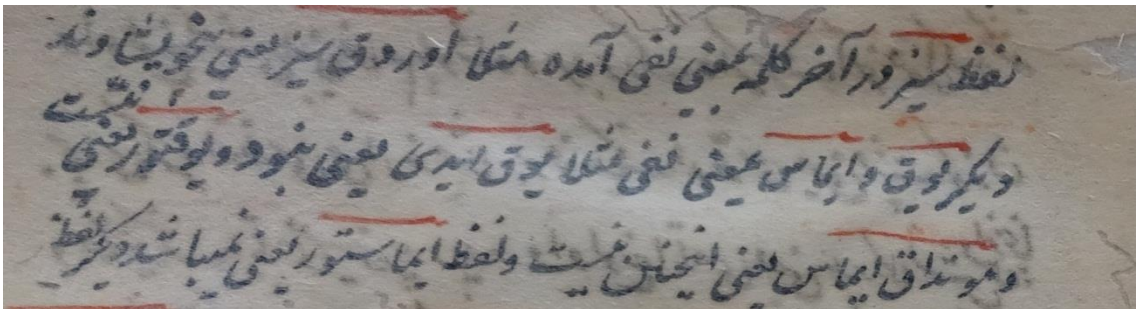 لفظ سیز در آخر کلمه بمعنی نفی آمده مثلا اوروق سیز یعنی بیخویشاوند
دیگر یوق و ایماس بمعنی نفی مثلا یوق ایدی یعنی نبود و یوقتور یعنی نیست
و مونداق ایماس یعنی اینچنین نیست و لفظ ایماستور یعنی نمیباشد دیگر لفظ